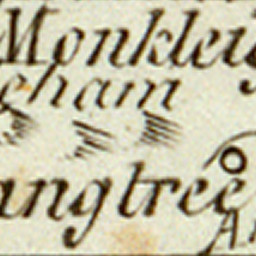 Monkleig
eham
angtree
A